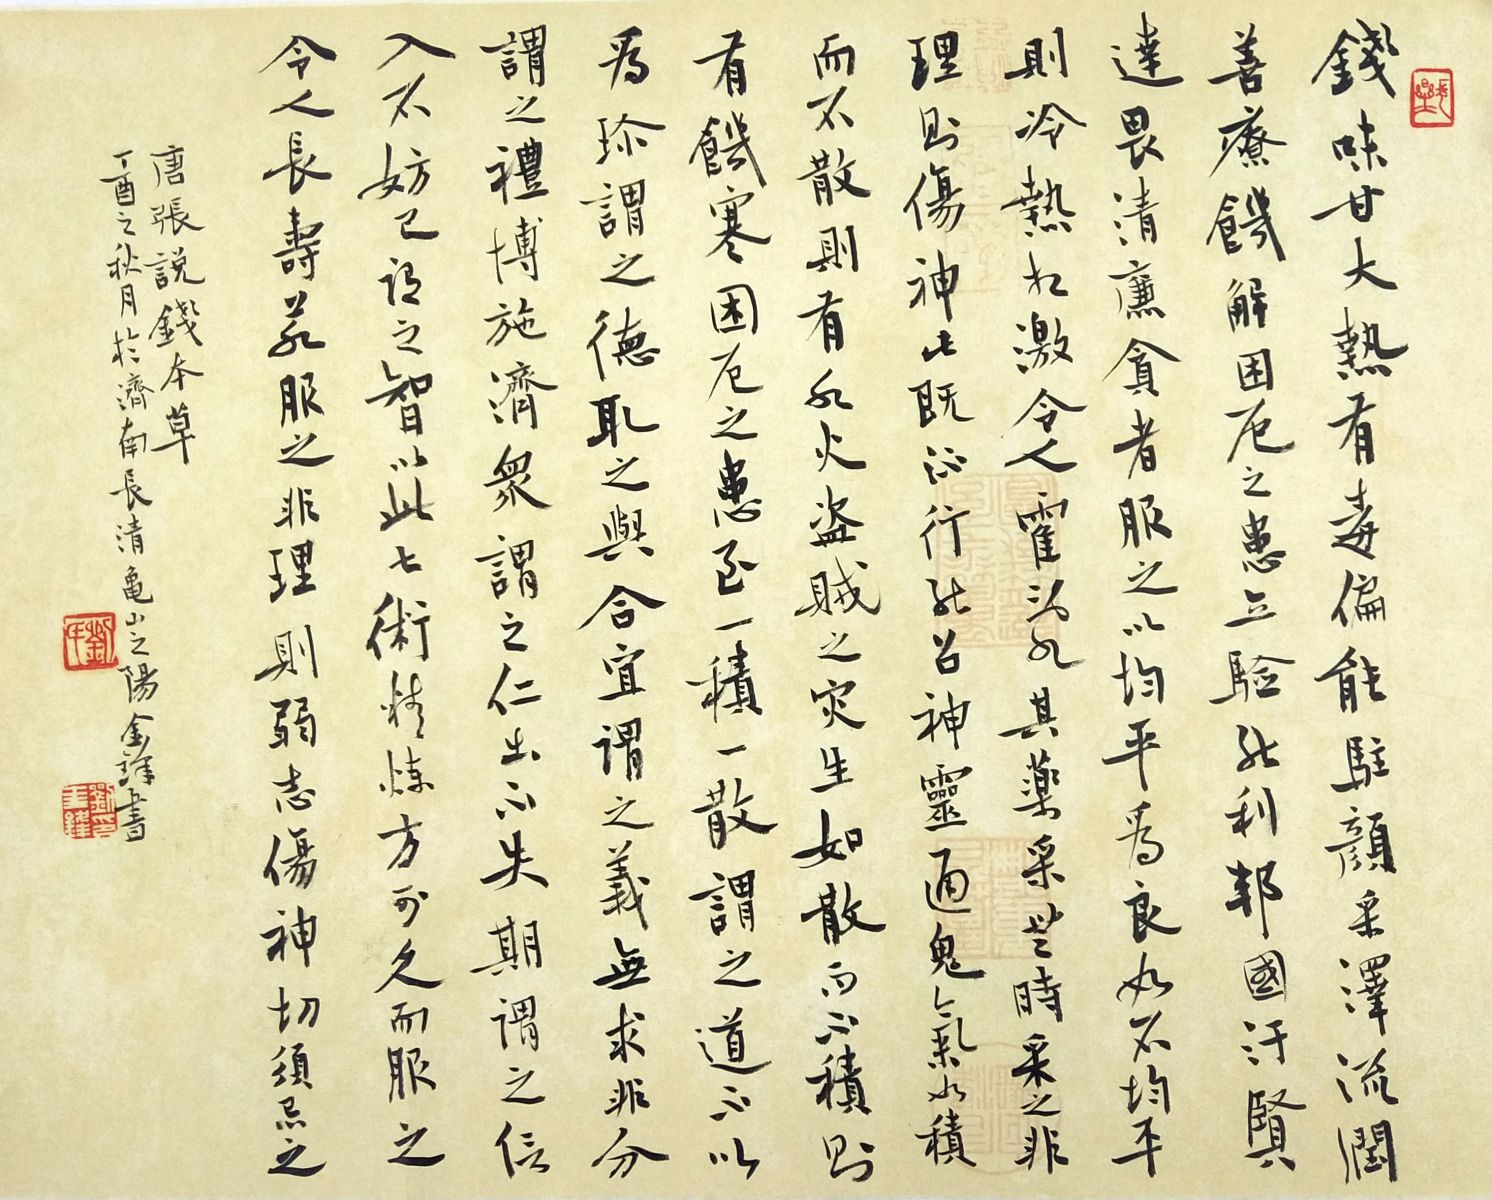 錢味甘大熱有毒偏能駐顏采澤流潤
善療饑解困厄之患立驗能利邦國汗賢
達畏清廉貪者服之以均平為良如不均平
則冷熱相激令人霍亂其藥采無時采之非
理則傷神此既流行能召神靈通鬼氣如積
而不散則有水火盜賊之灾生如散而不積則
有饑寒困厄之患至一積一散謂之道不以
為珎謂之德取之與合宜謂之義無求非分
謂之禮博施濟衆謂之仁出不失期謂之信
入不妨己謂之智以此七術精煉方可久而服之
令人長壽若服之非理則弱志傷神切須忌之
唐張説錢本草
丁酉之秋月於濟南長清龜山之陽金鋒書